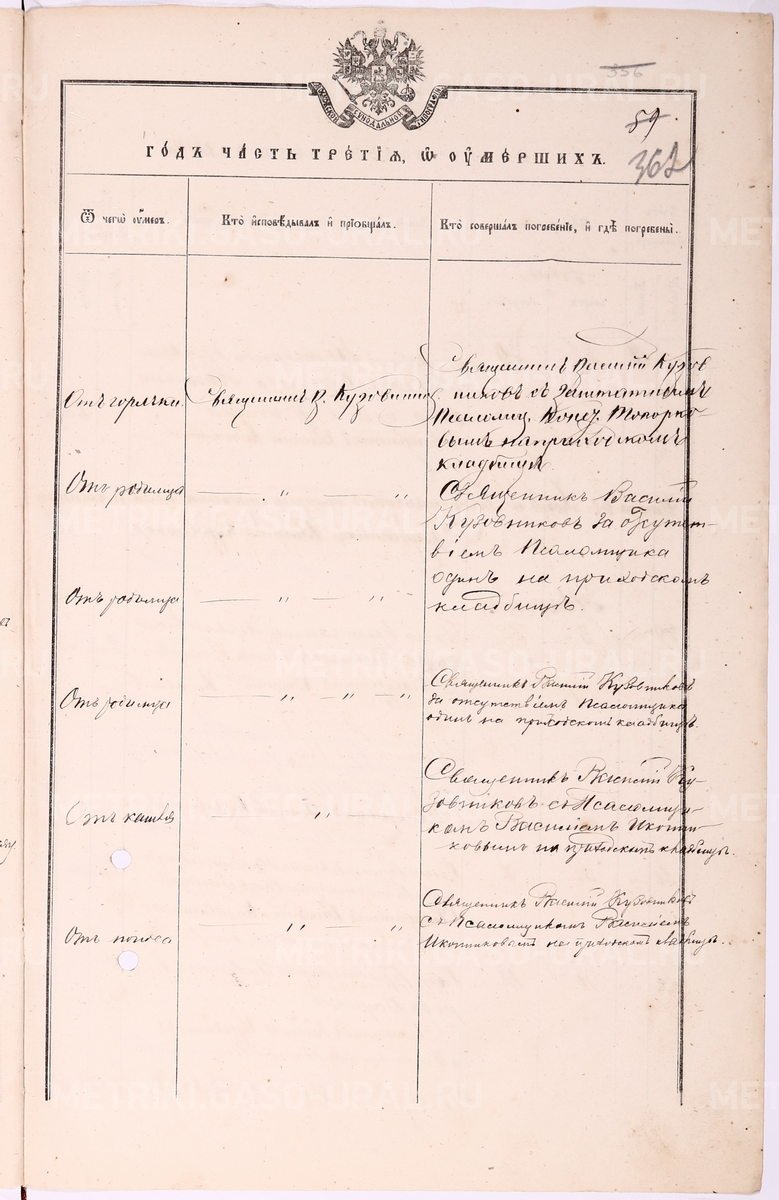 356
89
362
ГОДЪ ЧАСТЬ ТРЕТІѦ, Ѡ ОУМЕРШИХЪ.
Ѿ чегѡ оумеръ.
Кто исповѣдывалъ и пріобщалъ.
Кто совершалъ погребеніе, и гдѣ погребены.
Отъ горячки
Священникъ В. Кузовников
Священникъ Василій Кузов
никовъ съ Заштатнымъ
Псаломщ. Топорко-
вымъ на приходскомъ
кладбищѣ.
Отъ родимца
— „ — „
Священникъ Василій
Кузовниковъ за отсутст-
віемъ Псаломщика
одинъ на приходскомъ
кладбищѣ.
Отъ родимца
— „ — „ —
Отъ родимца
— „ — „ — „
Священникъ Василій Кузовниковъ
за отсутствіемъ Псаломщика
одинъ на приходскомъ кладбищѣ.
Отъ кашля
— „ —
Священникъ Василій Ку-
зовниковъ съ Псаломщи-
комъ Василіемъ Икон-
никовымъ на приходскомъ кладбищѣ.
Отъ поноса
„ — „
Священникъ Василій Кузовниковъ
съ Псаломщикомъ Василіемъ
Иконниковымъ на приходскомъ кладбищѣ.
METRIKI.GASO-URAL.RU